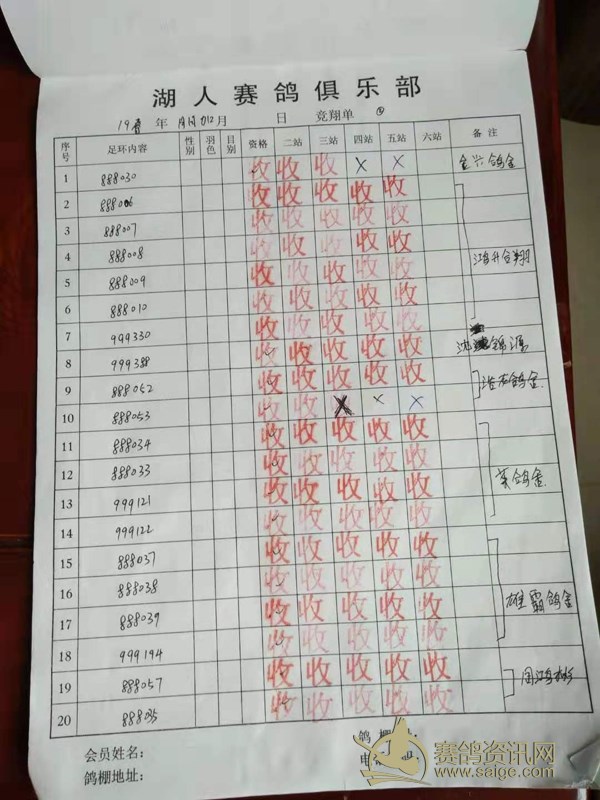 湖人赛鸽俱乐部
19春 年 月 日 竞翔单
序号 足环内容 性别 羽色 目别 资格 二站 三站 四站 五站 六站 备注
1 888030 收 收 收 X X
2 888006 收 收 收 收 收
3 888007 收 收 收 收 收
4 888008 收 收 收 收 收
5 888009 收 收 收 收 收
6 888010 收 收 收 收 收
7 999330 收 收 收 收 收
8 999388 收 收 收 收 收
9 888052 收 收 收 收 收
10 888053 收 收 X X X
11 888034 收 收 收 收 收
12 888033 收 收 收 收 收
13 999121 收 收 收 收 收
14 999122 收 收 收 收 收
15 888037 收 收 收 收 收
16 888038 收 收 收 收 收
17 888039 收 收 收 收 收 雄霸鸽舍
18 999194 收 收 收 收 收
19 888057 收 收 收 收 收
20 888035 收 收 收 收 收
会员姓名：
鸽棚地址：
赛鸽资讯网
www.saige.com